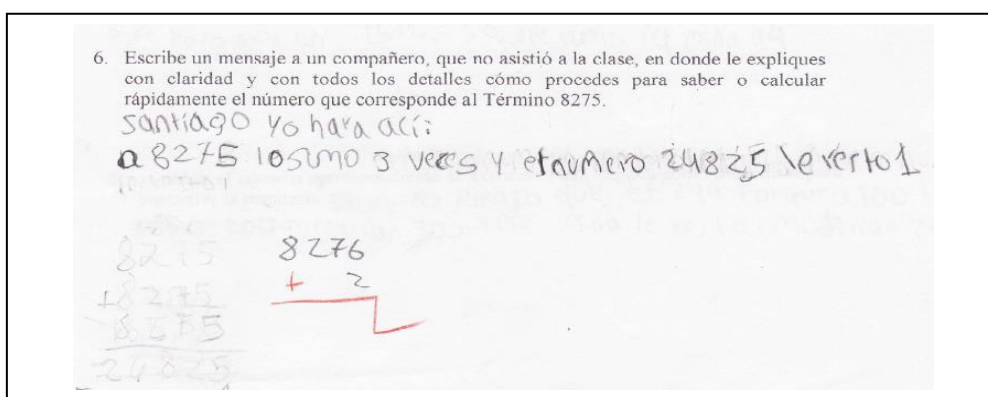 6. Escribe un mensaje a un compañero, que no asistió a la clase, en donde le expliques
con claridad y con todos los detalles cómo procedes para saber o calcular
rápidamente el número que corresponde al Término 8275.
santiago yo haría así:
a 8275 lo sumo 3 veces y el numero 24825 le resto 1
8275
+8275
8275
24825
8276
+ 2